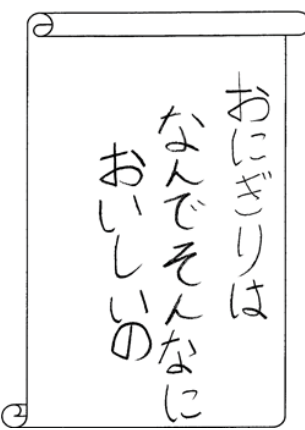 おにぎりは
なんでそんなに
おいしいの